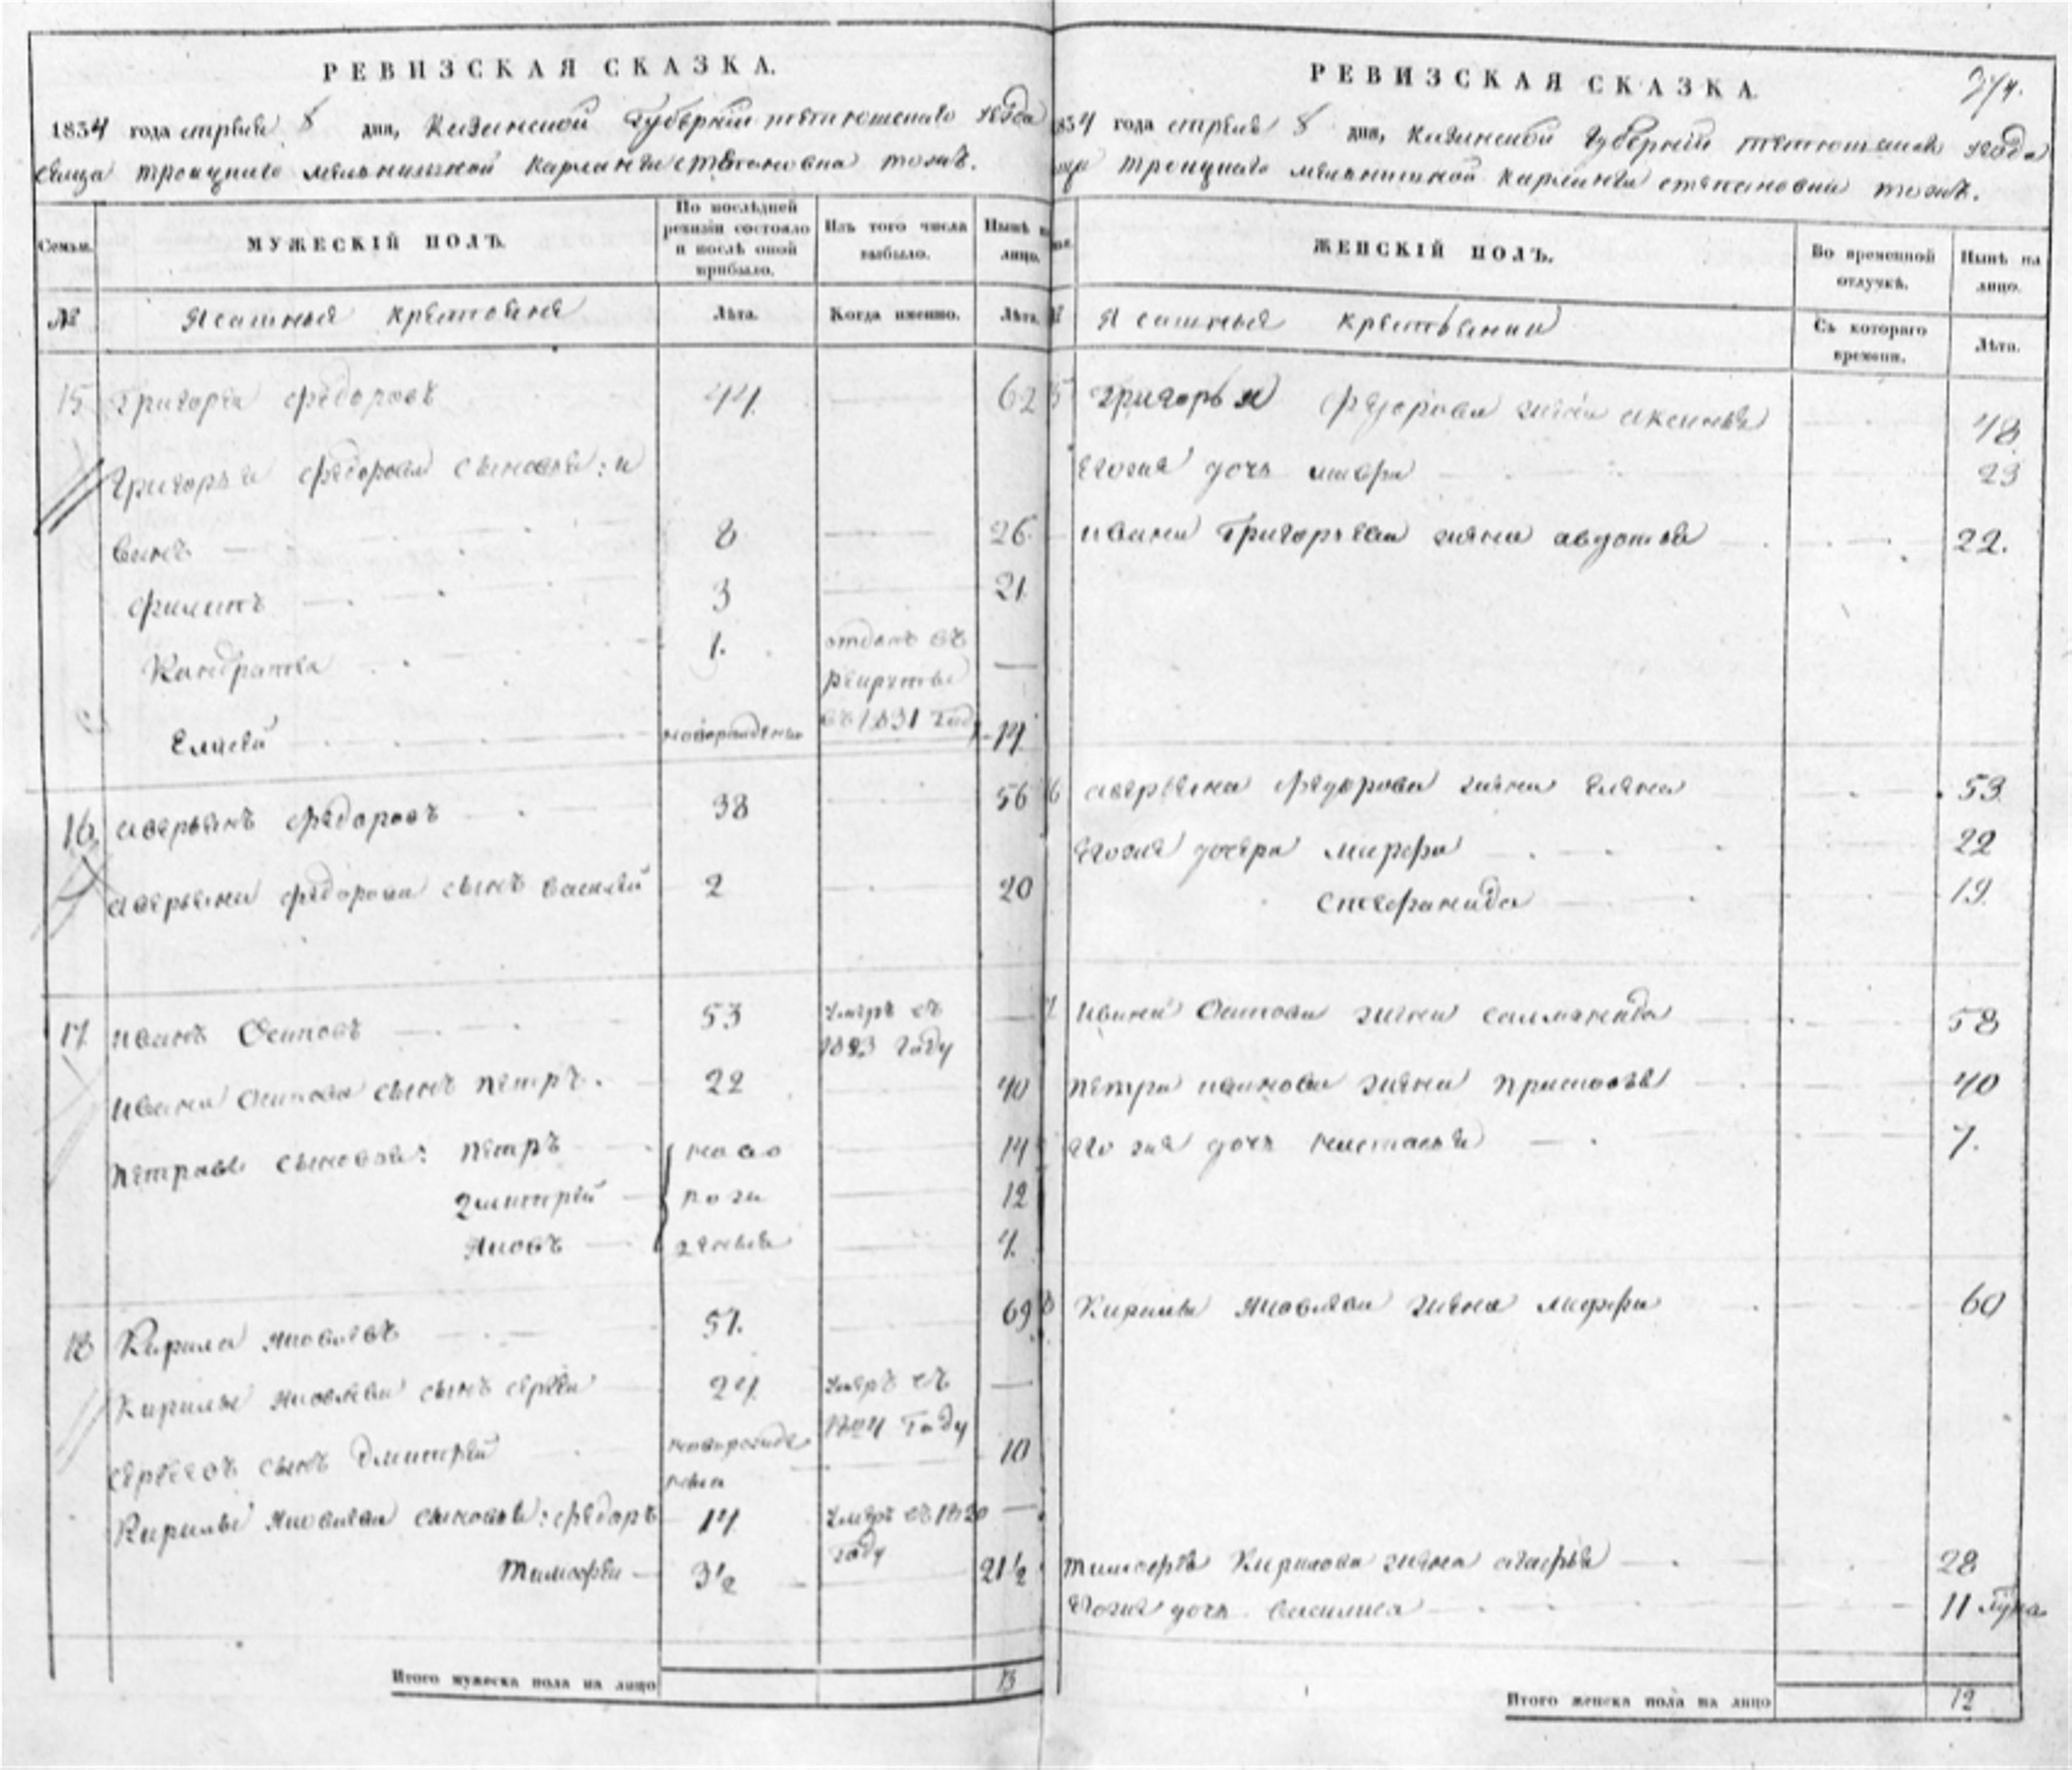 РЕВИЗСКАЯ СКАЗКА.
1834 года апреля 8 дня, Казанской Губернии тетюшскаго уезда
сельца троицкаго мельничной Карланги степановка тожъ.
Семьи.
МУЖЕСКІЙ ПОЛЪ.
По послѣдней ревизіи состояло и послѣ оной прибыло.
Изъ того числа выбыло.
Нынѣ на лицо.
№
Ясашныя крестьяне
Лѣта.
Когда именно.
Лѣта.
15 Григорей федоровъ 44. 62
Григорья федорова сыновья: и
ванъ 8 26.
филипъ 3 21
Кондратей 1. отданъ въ рекруты въ 1831 году —
Елисей новорожденъ 14
16. аверьянъ федоровъ 38 56
аверьяна федорова сынъ василей 2 20
17 иванъ Осиповъ 53 умеръ въ 1823 году —
ивана осипова сынъ петръ. 22 40
петровы сыновья: петръ ново 14
дмитрей рож 12
яковъ денные 7.
18 Кирила яковлевъ 51. 69
Кирилы яковлева сынъ сергей 24. умеръ въ 1824 году —
сергеевъ сынъ дмитрей новорожденъ 10
Кирилы яковлева сыновья: федоръ 14 умеръ въ 1820 году —
тимофей 3½ 21½
Итого мужеска пола на лицо 13
РЕВИЗСКАЯ СКАЗКА.
1834 года апреля 8 дня, Казанской Губернии тетюшскаго уезда
троицкаго мельничной карланги степановки тожъ.
ЖЕНСКІЙ ПОЛЪ.
Во временной отлучкѣ.
Нынѣ на лицо.
Ясашныя крестьянки
Съ котораго времени.
Лѣта.
15 григорья федорова жена аксинья 48
его же дочь мавра 23
ивана Григорьева жена авдотья 22.
16 аверьяна федорова жена елена 53
его же дочери марфа 22
степанида 19.
17 ивана Осипова жена саломанида 58
петра иванова жена прасковья 40
его же дочь настасья 7.
18 Кирилы яковлева жена марфа 60
тимофея Кирилова жена агафья 28
его же дочь василиса 11
Итого женска пола на лицо 12